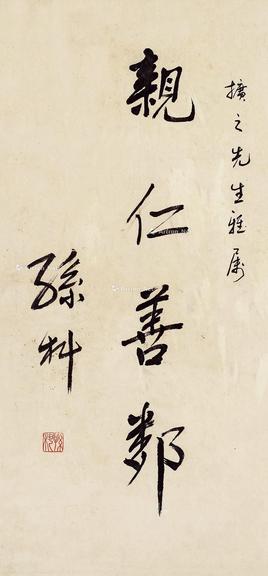 擴之先生雅屬
親仁善鄰
孫科